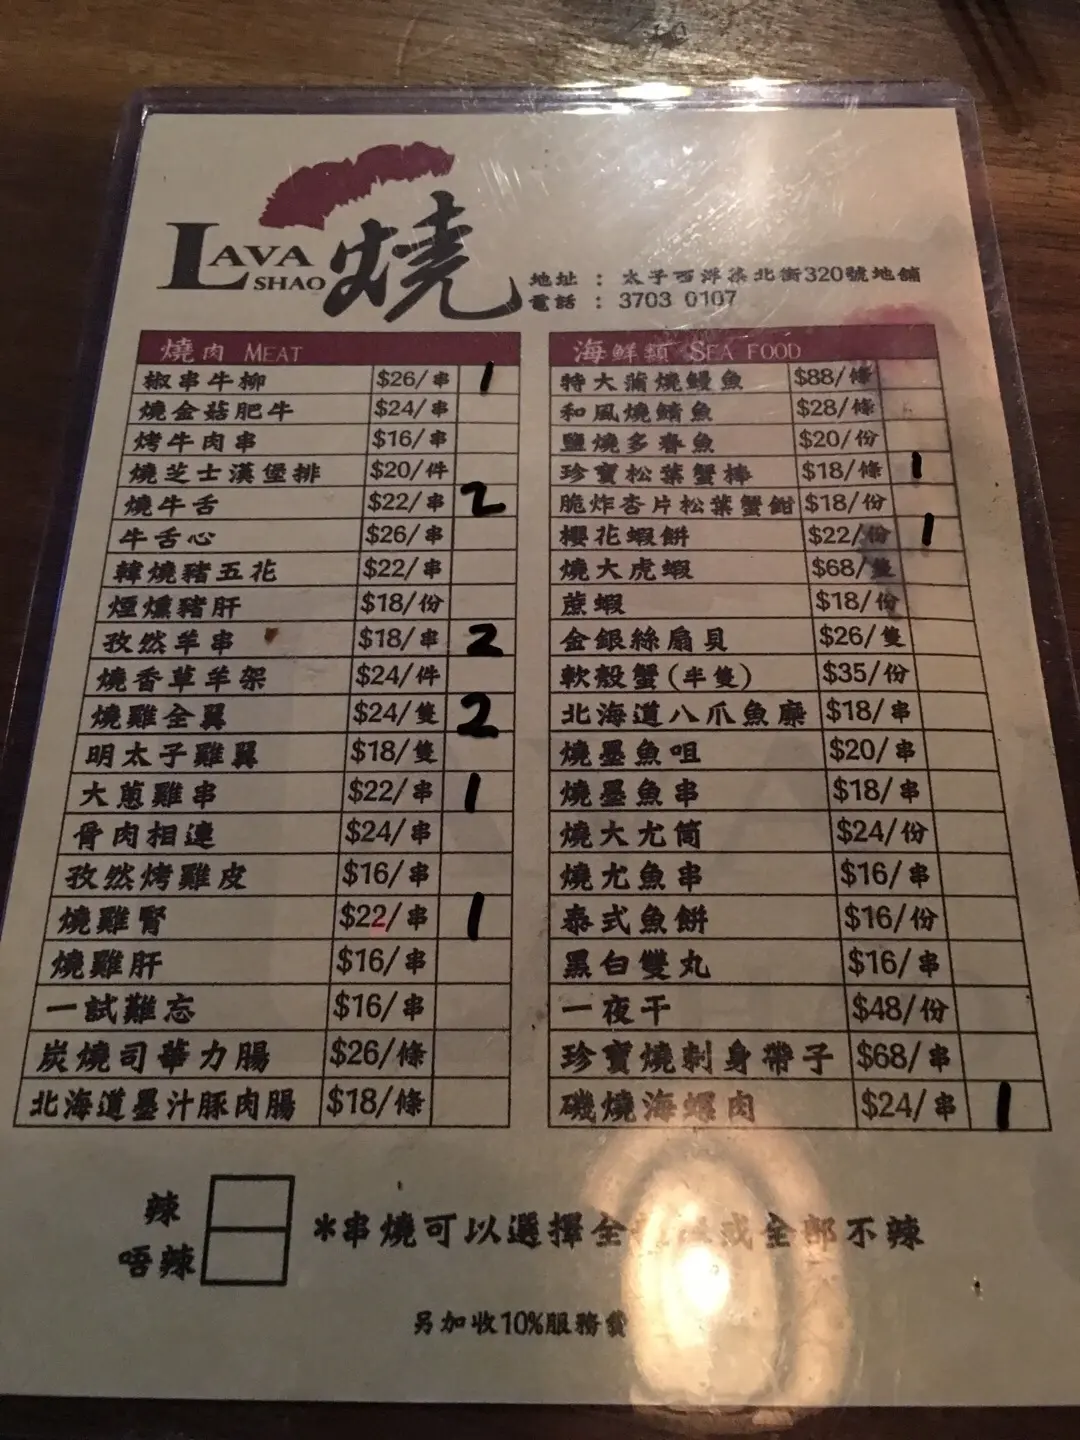 LAVA SHAO 燒
地址 : 太子西洋菜北街320號地舖
電話 : 3703 0107
燒肉 MEAT
椒串牛柳 $26/串 1
燒金菇肥牛 $24/串
烤牛肉串 $16/串
燒芝士漢堡排 $20/件
燒牛舌 $22/串 2
牛舌心 $26/串
韓燒豬五花 $22/串
煙燻豬肝 $18/份
孜然羊串 $18/串 2
燒香草羊架 $24/件
燒雞全翼 $24/隻 2
明太子雞翼 $18/隻
大蔥雞串 $22/串 1
骨肉相連 $24/串
孜然烤雞皮 $16/串
燒雞腎 $22/串 1
燒雞肝 $16/串
一試難忘 $16/串
炭燒司華力腸 $26/條
北海道墨汁豚肉腸 $18/條
海鮮類 SEA FOOD
特大蒲燒鰻魚 $88/條
和風燒鯖魚 $28/條
鹽燒多春魚 $20/份
珍寶松葉蟹棒 $18/條 1
脆炸杏片松葉蟹鉗 $18/份
櫻花蝦餅 $22/份 1
燒大虎蝦 $68/隻
蔗蝦 $18/份
金銀絲扇貝 $26/隻
軟殼蟹(半隻) $35/份
北海道八爪魚廉 $18/串
燒墨魚咀 $20/串
燒墨魚串 $18/串
燒大尤筒 $24/份
燒尤魚串 $16/串
泰式魚餅 $16/份
黑白雙丸 $16/串
一夜干 $48/份
珍寶燒刺身帶子 $68/串
磯燒海螺肉 $24/串 1
辣
唔辣
*串燒可以選擇全 或全部不辣
另加收10%服務費